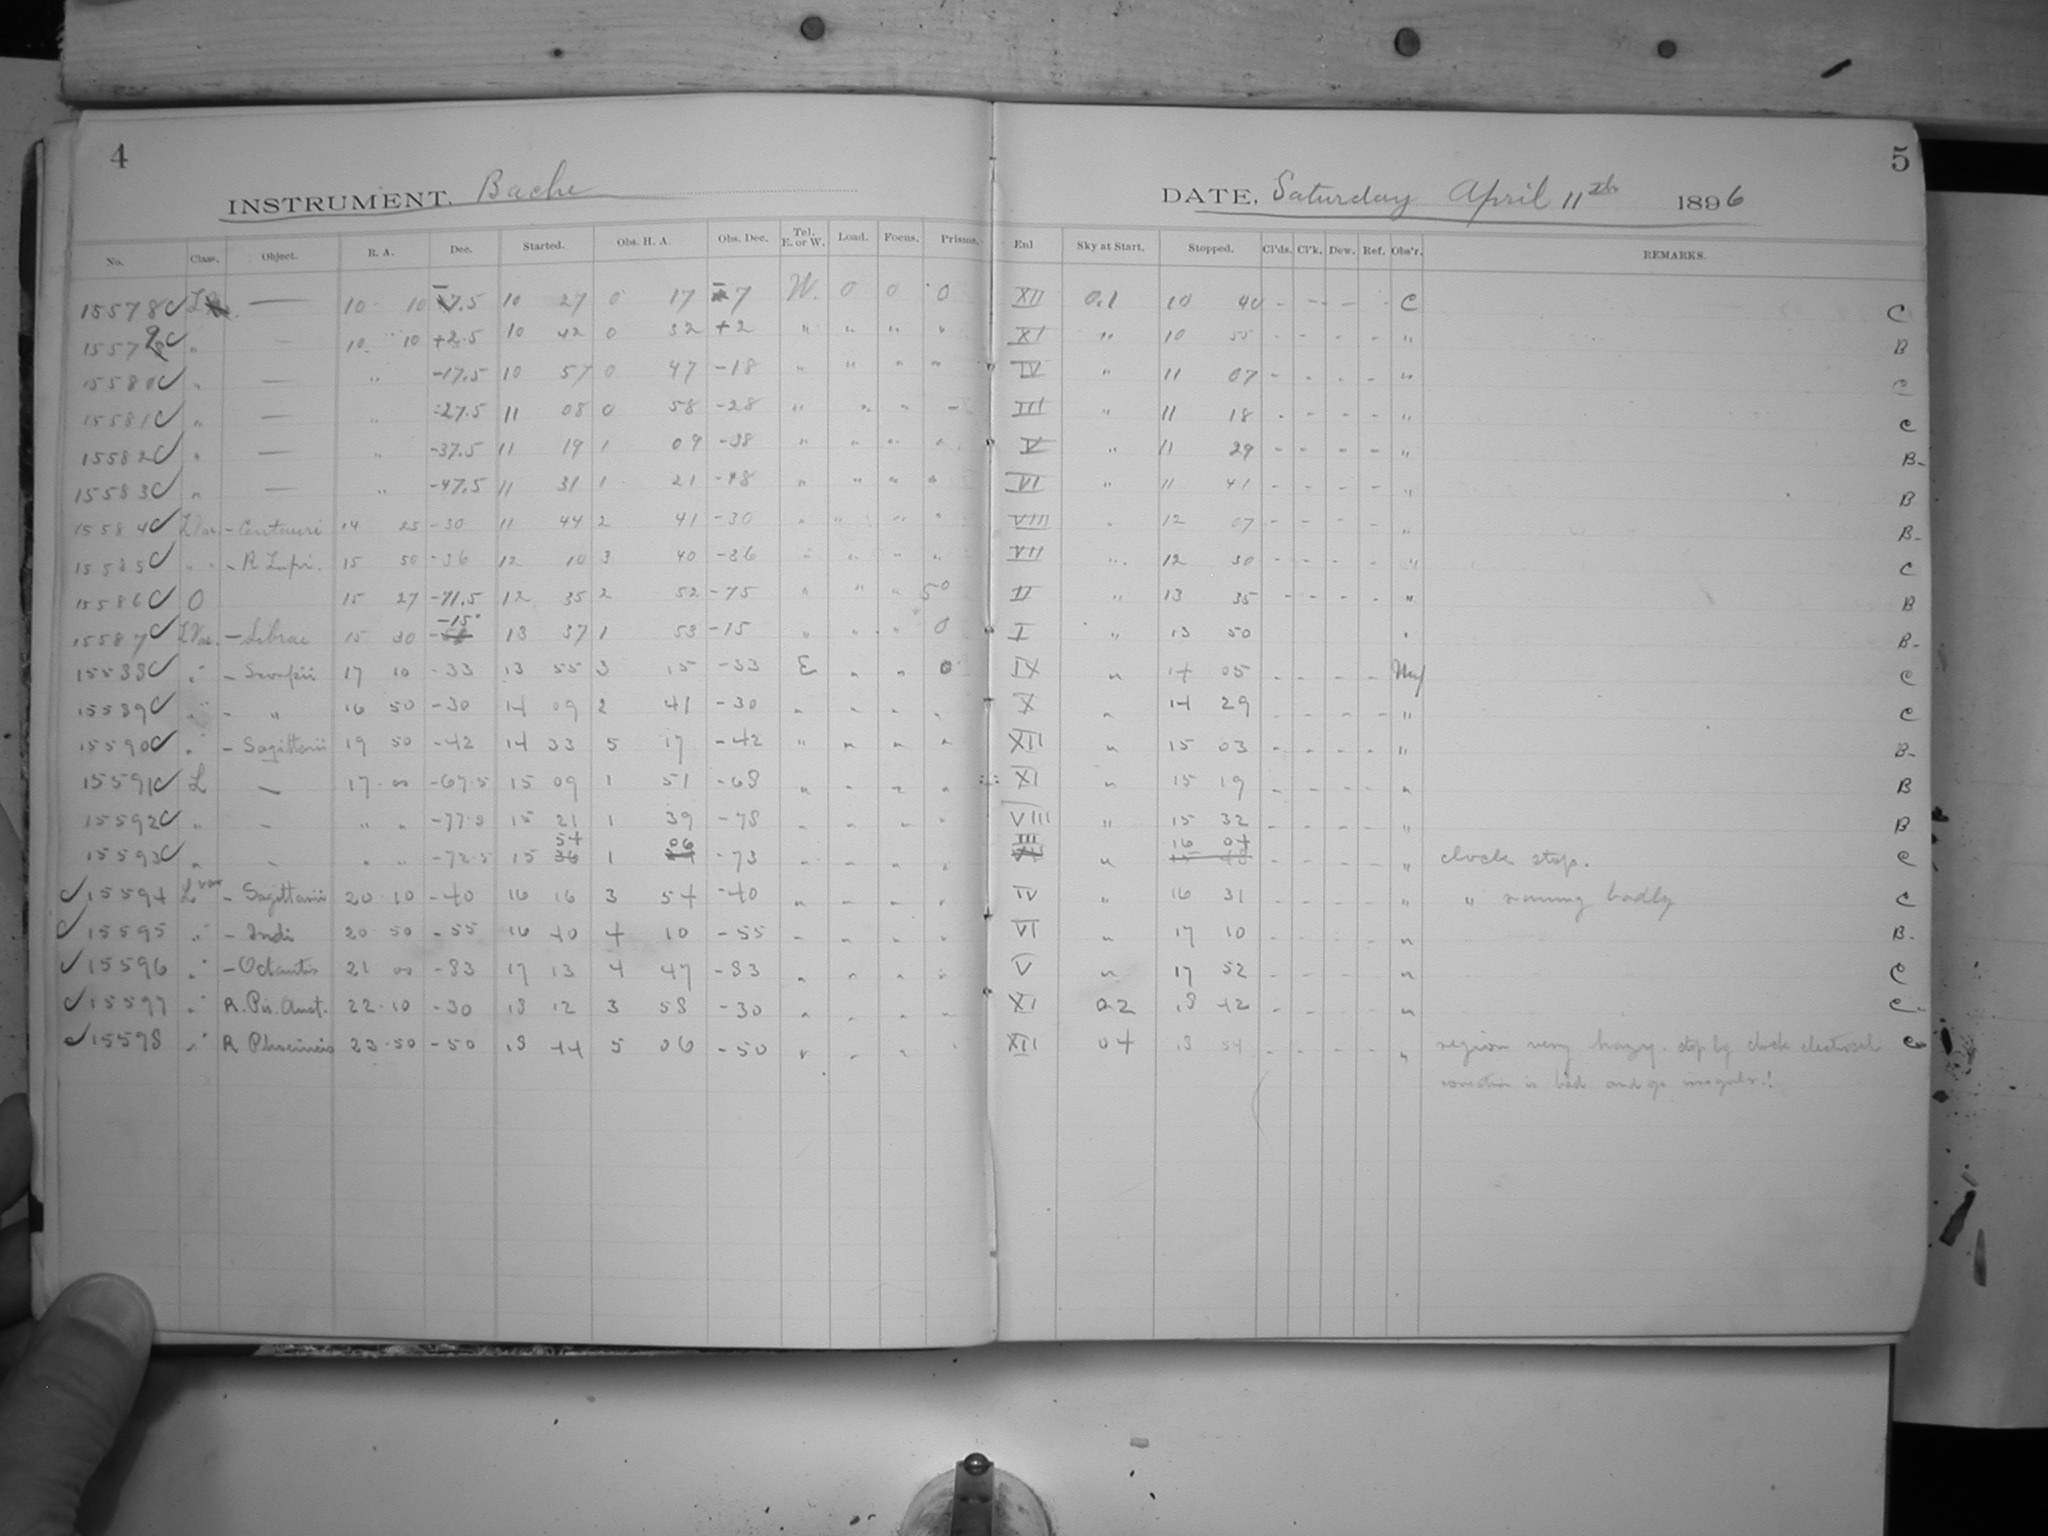 4
5
INSTRUMENT. Bache
DATE, Saturday April 11th 1896
No. Class. Object. R. A. Dec. Started. Obs. H. A. Obs. Dec. Tel. E. or W. Load. Focus. Prisms. Enl Sky at Start. Stopped. Cl'ds. Cl'k. Dew. Ref. Obs'r. REMARKS.
15578 L — 10 10 -7.5 10 27 0 17 -7 W. 0 0 0 XII 0.1 10 40 - - - - C C
15579 " — 10 10 +2.5 10 42 0 32 +2 " " " " XI " 10 55 - - - - " B
15580 " — " -17.5 10 57 0 47 -18 " " " " IV " 11 07 - - - - " C
15581 " — " -27.5 11 08 0 58 -28 " " " - III " 11 18 - - - - " C
15582 " — " -37.5 11 19 1 09 -38 " " " " V " 11 29 - - - - " B-
15583 " — " -47.5 11 31 1 21 -48 " " " " VI " 11 41 - - - - " B
15584 L Var. - Centauri 14 25 -30 11 44 2 41 -30 " " " " VIII " 12 07 - - - - " B-
15585 " " - R Lupi. 15 50 -36 12 10 3 40 -36 " " " " VII " 12 30 - - - - " C
15586 O 15 27 -71.5 12 35 2 52 -75 " " " 50 II " 13 35 - - - - " B
15587 L Var. - Librae 15 30 -15 13 37 1 53 -15 " " " 0 I " 13 50 " B-
15588 " " - Scorpii 17 10 -33 13 55 3 15 -33 E " " 0 IX " 14 05 - - - - C
15589 " " - " 16 50 -30 14 09 2 41 -30 " " " " X " 14 29 - - - - " C
15590 " " - Sagittarii 19 50 -42 14 33 5 17 -42 " " " " XII " 15 03 - - - - " B-
15591 L — 17 00 -67.5 15 09 1 51 -68 " " " " XI " 15 19 - - - - " B
15592 " — " " -77.5 15 21 1 39 -78 " " " " VIII " 15 32 - - - - " B
15593 " — " " -72.5 15 54 1 06 -73 " " " " III " 16 04 - - - - " clock stop. C
15594 L var - Sagittarii 20 10 -40 16 16 3 54 -40 " " " " IV " 16 31 - - - - " " running badly C
15595 " " - Indi 20 50 -55 16 40 4 10 -55 " " " " VI " 17 10 - - - - " B-
15596 " " - Octantis 21 00 -83 17 13 4 47 -83 " " " " V " 17 52 - - - - " C
15597 " " R. Pis. Aust. 22 10 -30 18 12 3 58 -30 " " " " XI 0.2 18 42 - - - - " C-
15598 " " R Phoenicis 23 50 -50 18 44 5 06 -50 " " " " XII 04 18 54 - - - - " region very hazy. stop by clock electrical C
correction is bad and go irregular!